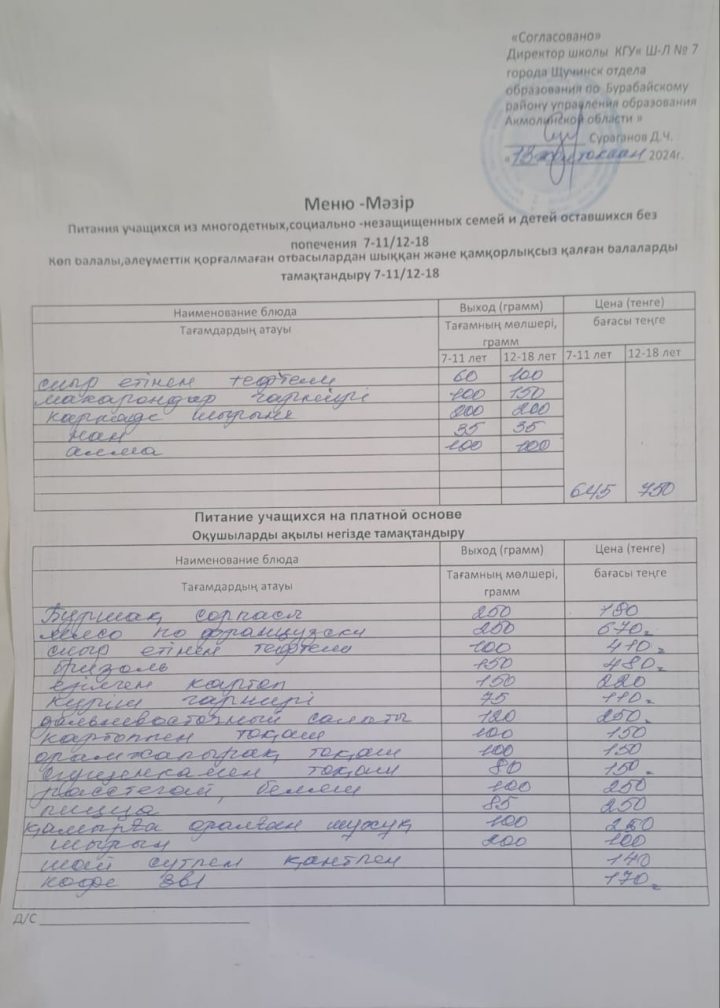 «Согласовано»
Директор школы КГУ« Ш-Л № 7
города Щучинск отдела
образования по Бурабайскому
району управления образования
Акмолинской области »
Сураганов Д.Ч.
«13 желтоқсан 2024г.
Меню -Мәзір
Питания учащихся из многодетных,социально -незащищенных семей и детей оставшихся без
попечения 7-11/12-18
Көп балалы,әлеуметтік қорғалмаған отбасылардан шыққан және қамқорлықсыз қалған балаларды
тамақтандыру 7-11/12-18
Наименование блюда Выход (грамм) Цена (тенге)
Тағамдардың атауы Тағамның мөлшері, грамм бағасы теңге
7-11 лет 12-18 лет 7-11 лет 12-18 лет
сиыр етінен тефтели 60 100
макарондар гарнирі 100 150
каркаде шырыны 200 200
нан 35 35
алма 100 100
645 750
Питание учащихся на платной основе
Оқушыларды ақылы негізде тамақтандыру
Наименование блюда Выход (грамм) Цена (тенге)
Тағамдардың атауы Тағамның мөлшері, грамм бағасы теңге
Бұршақ сорпасы 250 180
мясо по французски 250 670
сиыр етінен тефтели 100 410
бризоль 150 480
езілген картоп 150 220
күріш гарнирі 75 110
дальневосточный салаты 120 250
картоппен тоқаш 100 150
орамжапырақ тоқаш 100 150
сгущенкамен тоқаш 80 150
расстегай, беляш 100 250
пицца 85 250
қамырға оралған шұжық 100 250
шырын 200 100
шай сүтпен қантпен 140
кофе 3в1 170
Д/С